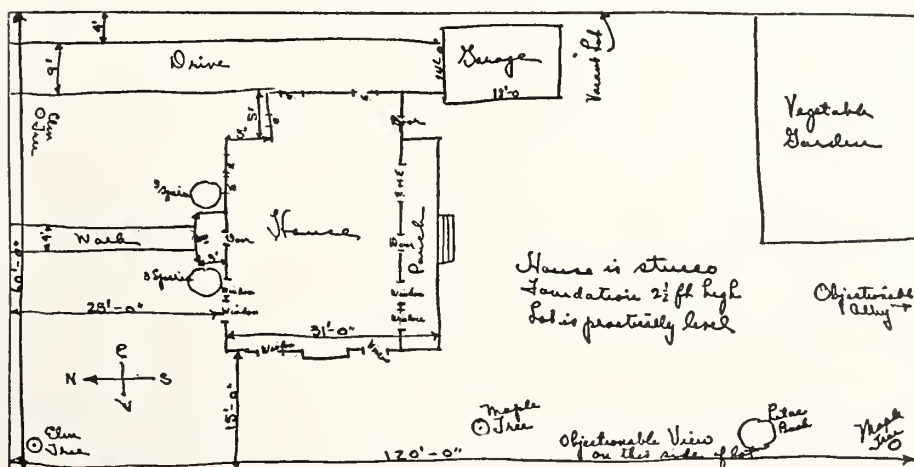 4'
Drive
9'
Garage
14'-0"
18'-0
Vacant Lot
Vegetable
Garden
Elm
Tree
5'
5'
Door
3 Spirea
House
Door
Door
Porch
Walk
4'
60'-0"
3 Spirea
Window
Window
Window
Window
25'-0"
31'-0"
House is stucco
Foundation 2½ ft high
Lot is practically level
Objectionable
Alley
Window
N
S
15'-0"
Elm
Tree
Maple
Tree
Objectionable View
on this side of lot
Lilac
Bush
Maple
Tree
120'-0"